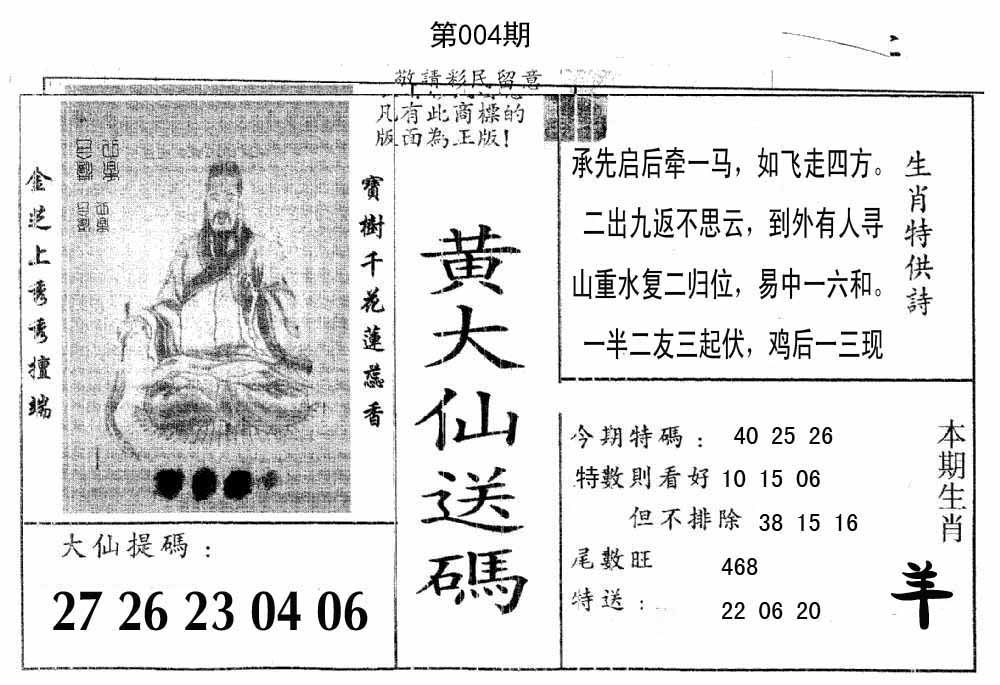 第004期
敬請彩民留意
凡有此商標的
版面為正版!
金芝上秀
擅端
寶樹千花蓮蕊香
大仙提碼:
27 26 23 04 06
黃大仙送碼
承先启后牵一马，如飞走四方。
二出九返不思云，到外有人寻
山重水复二归位，易中一六和。
一半二友三起伏，鸡后一三现
生肖特供詩
今期特碼: 40 25 26
特數則看好 10 15 06
但不排除 38 15 16
尾數旺 468
特送: 22 06 20
本期生肖
羊